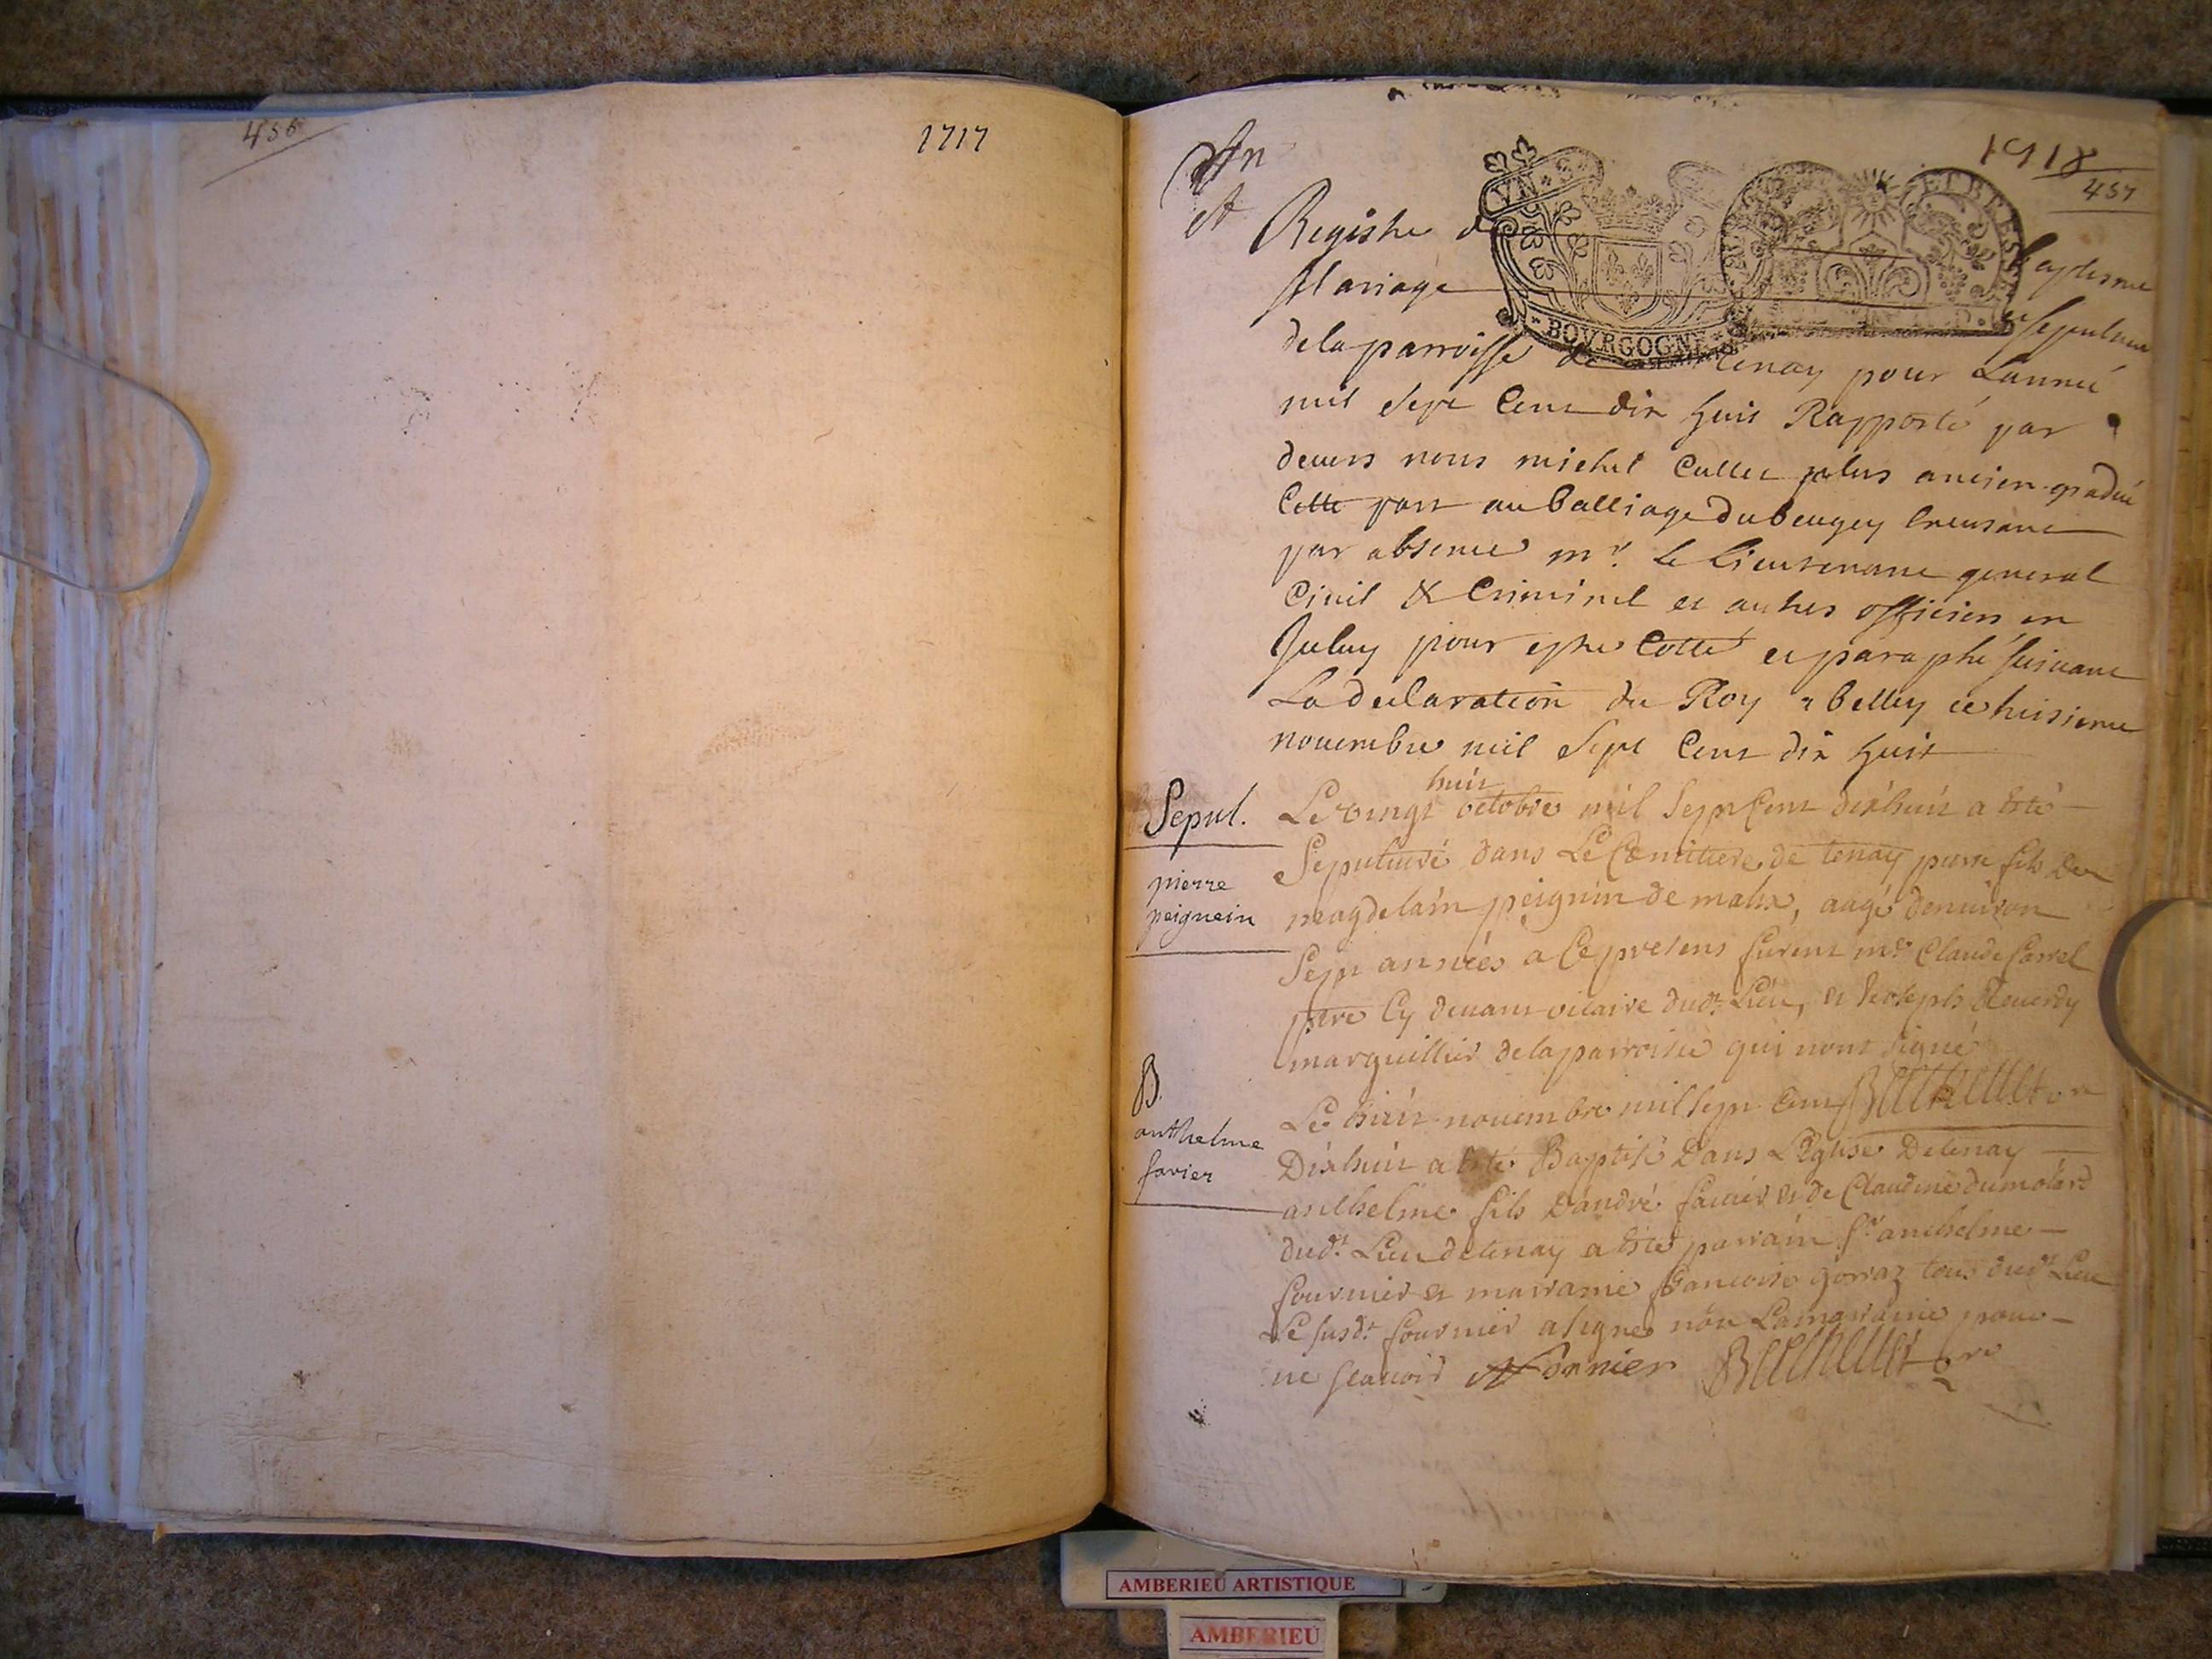 456
1717
1718
457
Registre de baptesme
Mariage et sepulture
de la parroisse de Tenay pour Lannée
mil Sept Cent dix huit Rapporté par
devers nous michel Cullet plus ancien gradué
Cotte part au balliage du beugey Creusant
par absence mr. le lieutenant general
Civil & Criminel et autres officiers en
Iceluy pour estre Cotté et paraphé suivant
La declaration du Roy a belley ce huitieme
novembre mil Sept Cent dix huit
Sepul.
pierre
peignein
Le vingt huit octobre mil Sept Cent dixhuit a Esté
Sepulturé dans Le Cœmitiere de tenay pierre fils de
magdelain peignin de malix, aagé denviron
Sept années a Ce presens furent mre Claude Carrel
ptre Cy devant vicaire dud.t Lieu, et Joseph
marguillier de la parroisse qui nont signé
B.
anthelme
favier
Le huit novembre mil sept Cent
Dixhuit a Esté Baptisé Dans L'Eglise De tenay
anthelme fils D'andré favier et de Claudine dumolard
dud.t Lieu de tenay a Esté parrain Sr. anthelme
fournier et marraine francoise gorraz tous dud.t Lieu
Le susd.t fournier a signé non La marraine pour
ne scavoir Fornier
AMBERIEU ARTISTIQUE
AMBERIEU
BOVRGOGNE
ET BRESSE